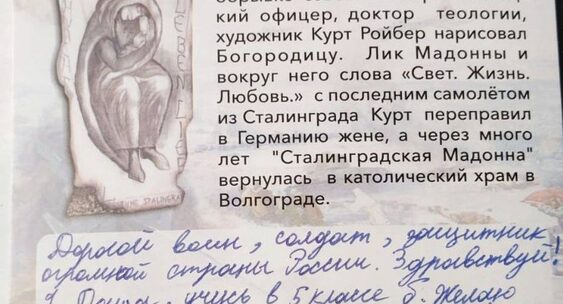 кий офицер, доктор теологии,
художник Курт Ройбер нарисовал
Богородицу. Лик Мадонны и
вокруг него слова «Свет. Жизнь.
Любовь.» с последним самолётом
из Сталинграда Курт переправил
в Германию жене, а через много
лет "Сталинградская Мадонна"
вернулась в католический храм в
Волгограде.
Дорогой воин, солдат, защитник
огромной страны России. Здравствуй!
учусь в 5 классе Желаю